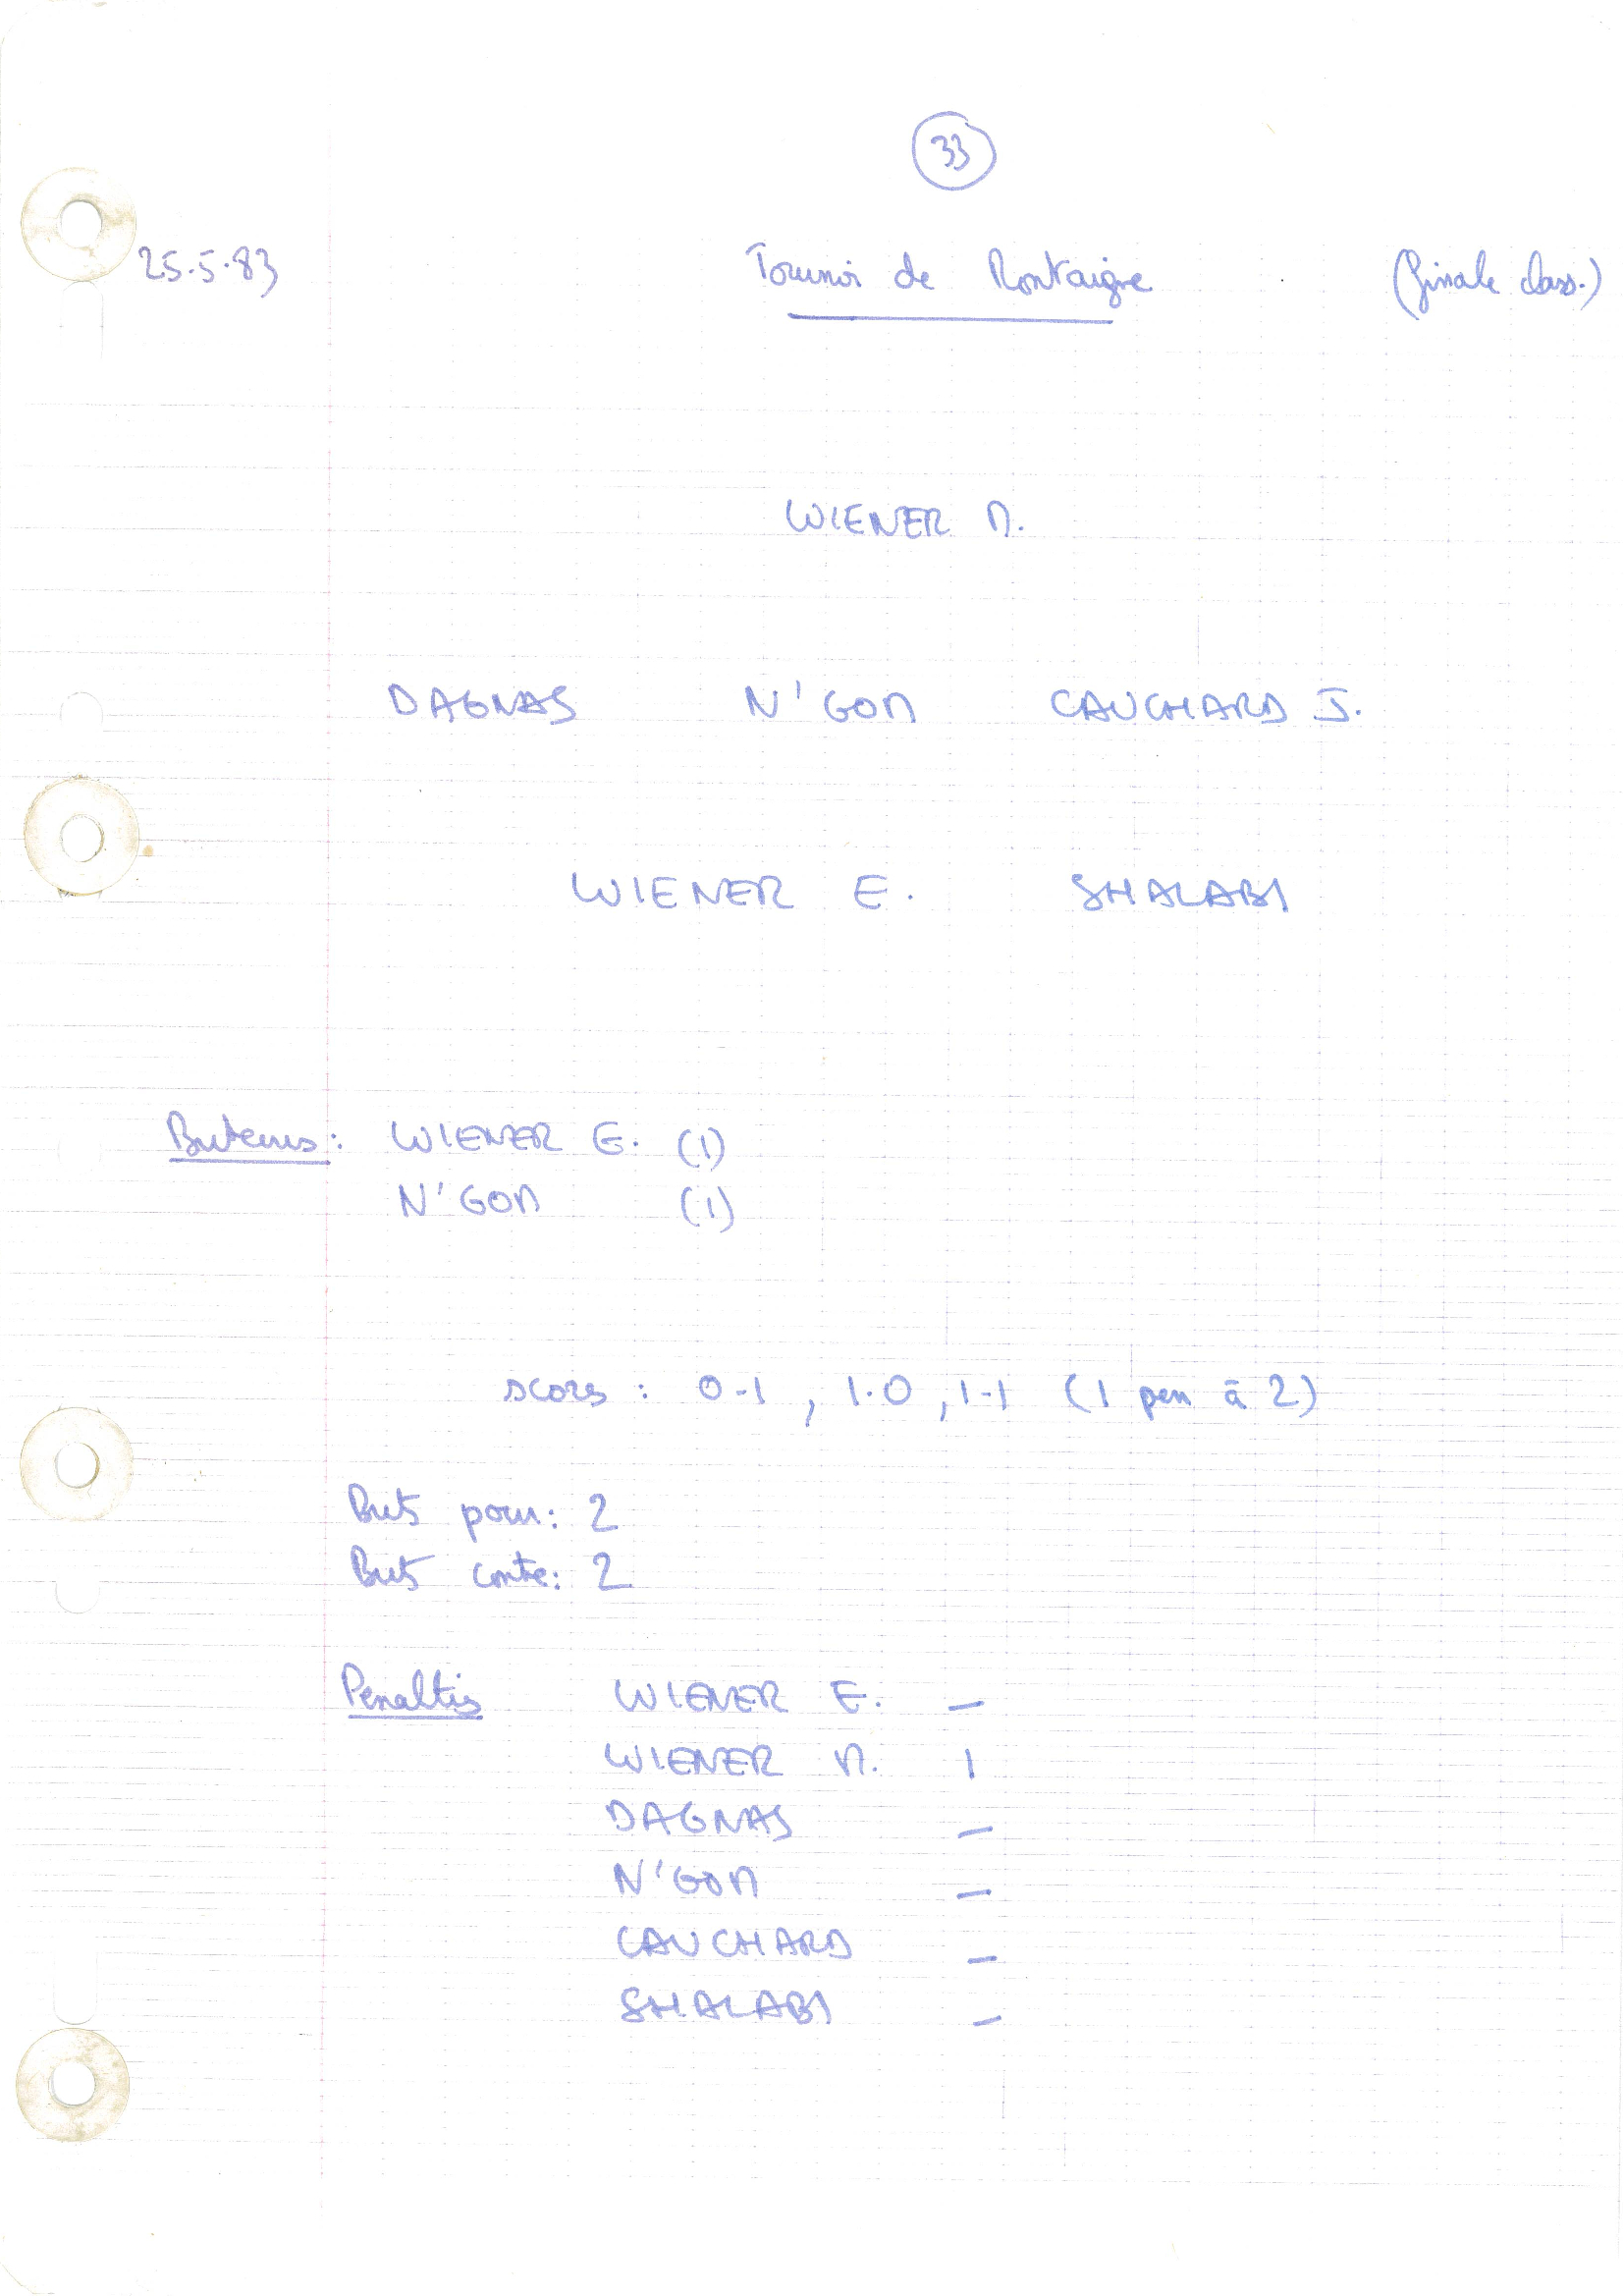 33
25.5.83 Tournoi de Montaigne (finale class.)
WIENER M.
DAGNAS N'GOM CAUCHARD J.
WIENER E. SHALABI
Buteurs : WIENER E. (1)
N'GOM (1)
scores : 0-1 , 1-0 , 1-1 (1 pen à 2)
Buts pour : 2
Buts contre : 2
Penaltis WIENER E. —
WIENER M. 1
DAGNAS —
N'GOM —
CAUCHARD —
SHALABI —